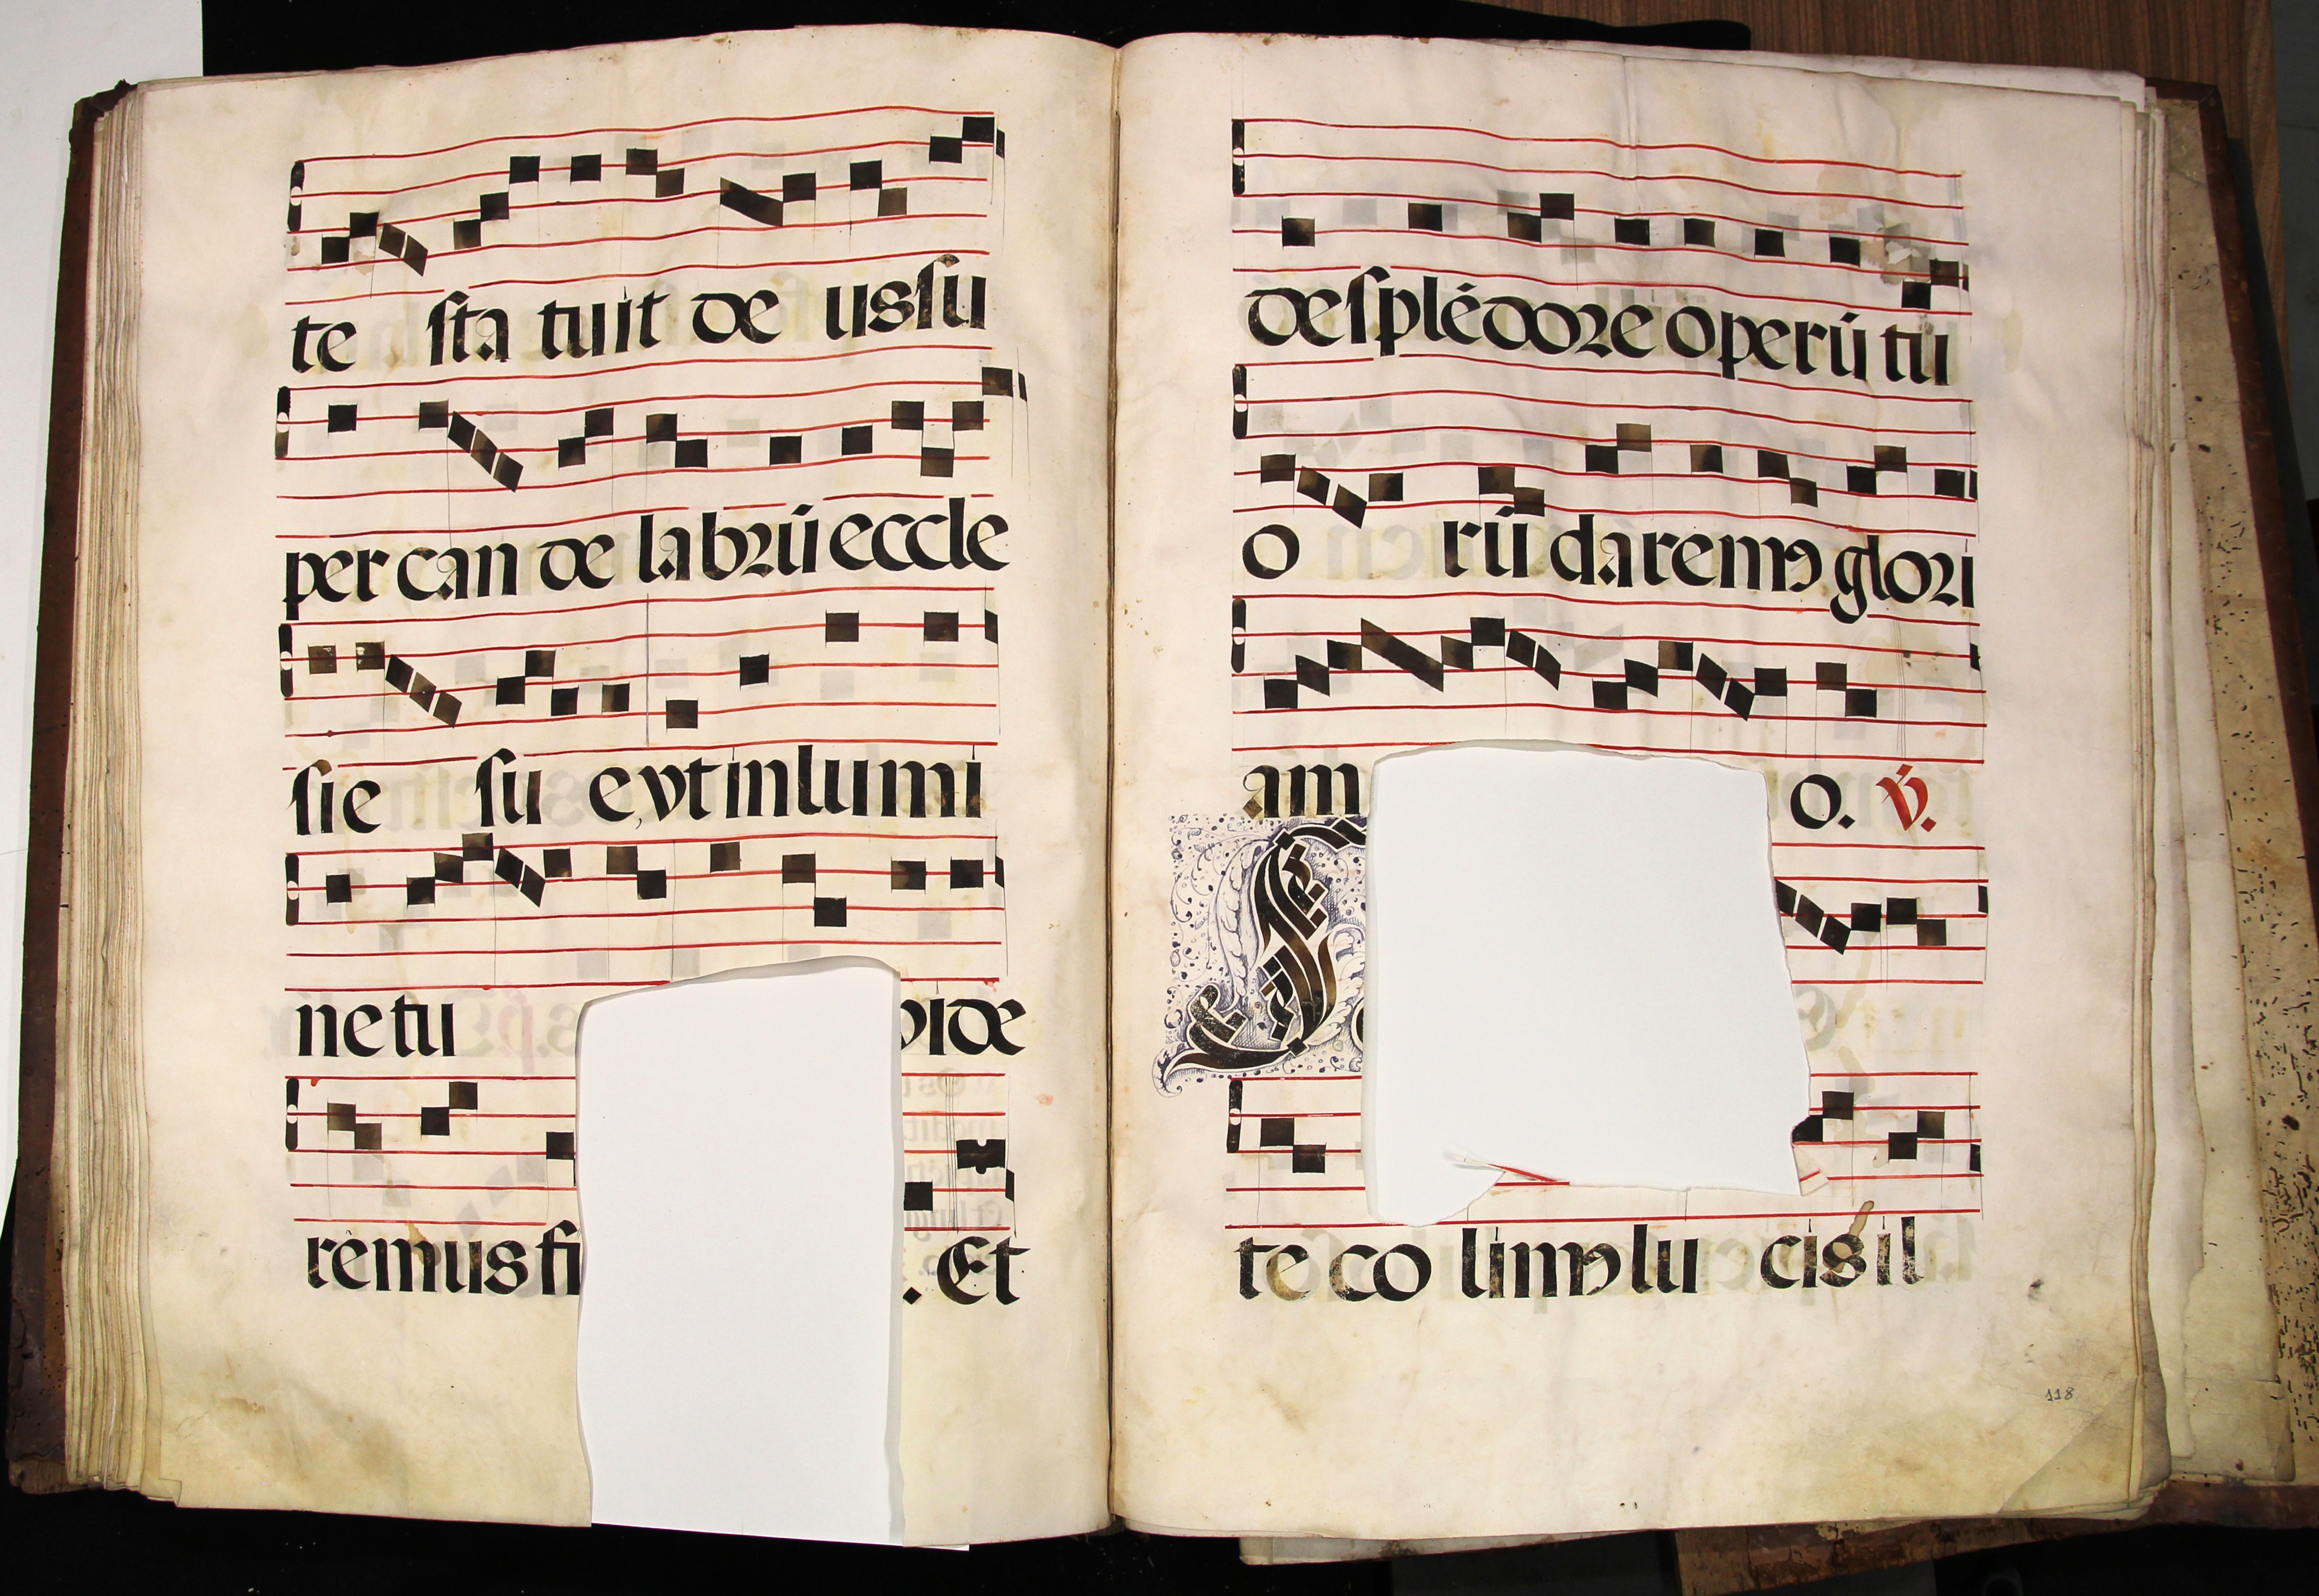 te sta tuit de us su
per can de labrū eccle
sie su e, vt in lumi
ne tu vide
remus fi . Et
de splēdore operū tu
o rū daremꝰ glori
am o. v̄.
te co limꝰ lu cis il
118